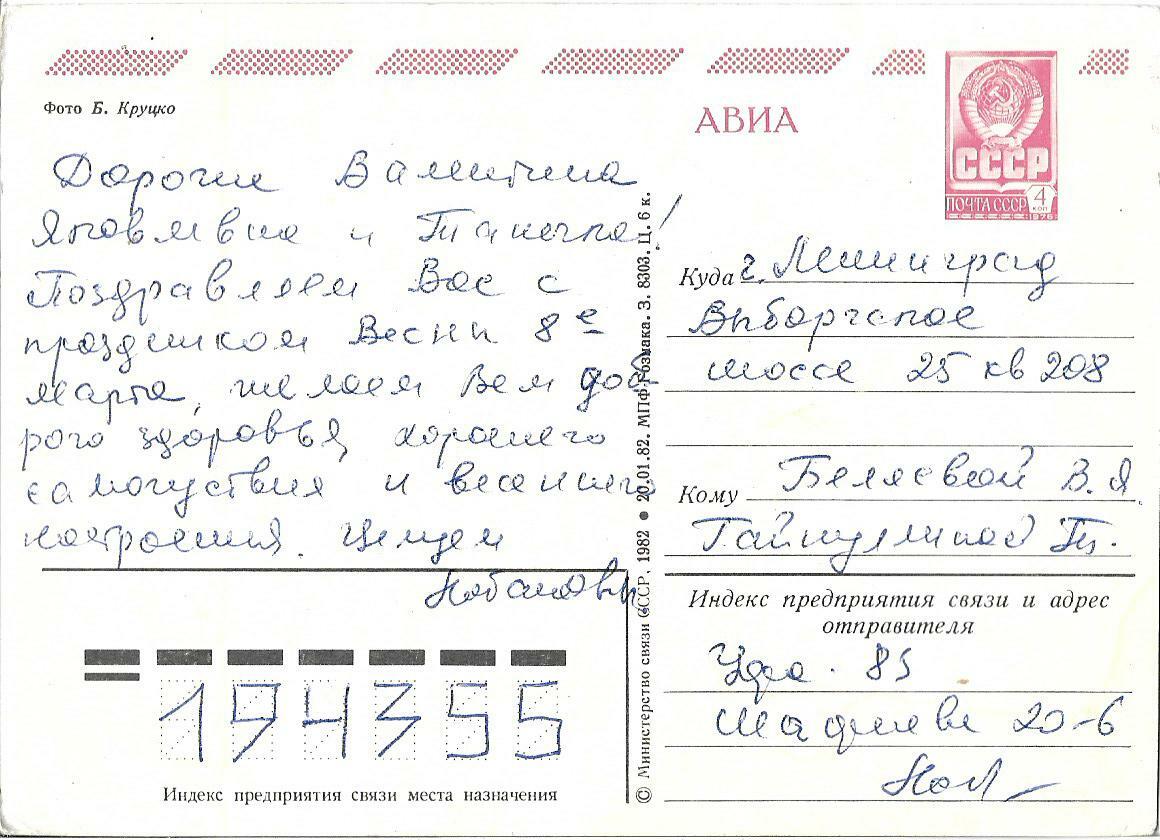 Фото Б. Круцко
АВИА
СССР
ПОЧТА СССР 4 КОП
1976
Дорогие Валентина
Яковлевна и Танечка!
Поздравляем Вас с
праздником Весны 8е
марта, желаем Вам доб
рого здоровья, хорошего
самочувствия и весеннего
настроения. Целуем
Куда г. Ленинград
Выборгское
шоссе 25 кв 208
Кому Беляевой В. Я.
Гайнуллиной Т.
Индекс предприятия связи и адрес
отправителя
Уфа - 85
Шафиева 20-6
194355
Индекс предприятия связи места назначения
© Министерство связи СССР, 1982 ● 20.01.82. МПФГознака. З. 8303. Ц. 6 к.